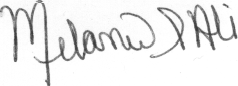 Melanie S Ali